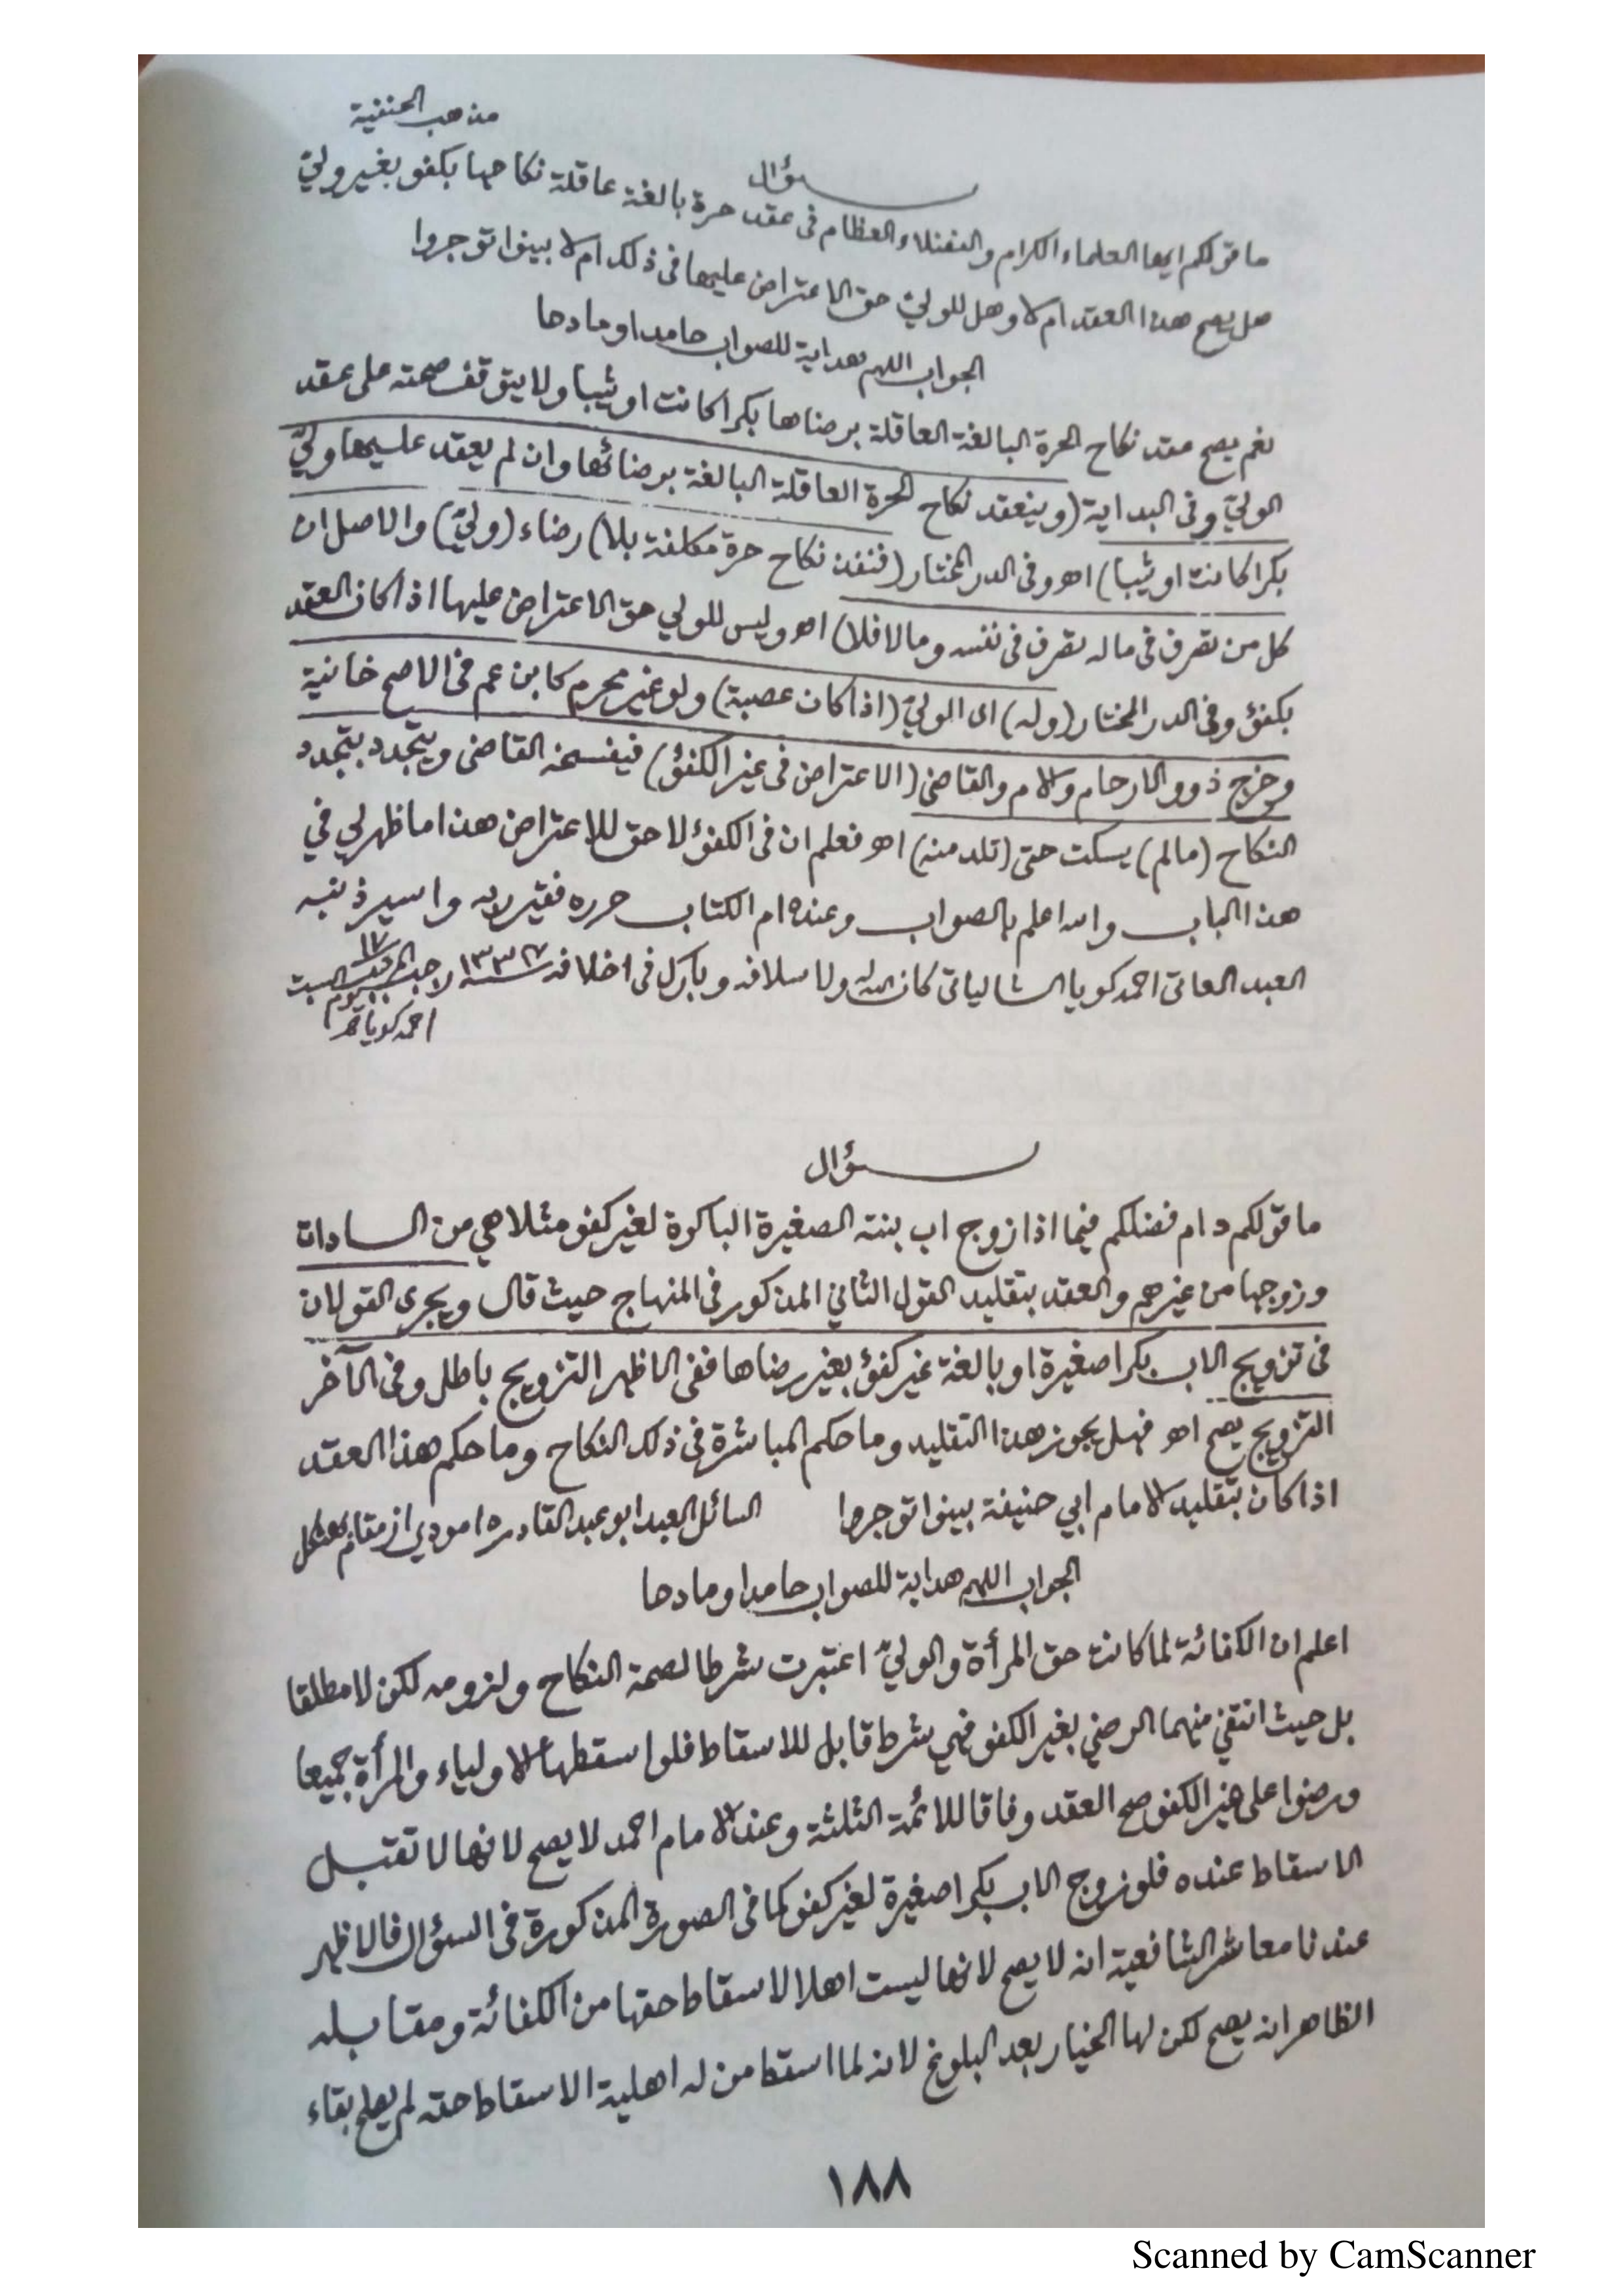 مذهب الحنفية
سؤال
ما قولكم ايها العلماء الكرام والفضلاء العظام فى عقد حرة بالغة عاقلة نكاحها بكفو بغير ولىّ
هل يصح هذا العقد ام لا وهل للولىّ حق الاعتراض عليها فى ذلك ام لا بينوا توجروا
الجواب اللهم هداية للصواب حامدا ومادحا
نعم يصح عقد نكاح الحرة البالغة العاقلة برضاها بكرا كانت او ثيبا ولا يتوقف صحته على عقد
الولىّ وفى البداية (وينعقد نكاح الحرة العاقلة البالغة برضائها وان لم يعقد عليها ولىّ
بكرا كانت او ثيبا) اهـ وفى الدر المختار (فنفذ نكاح حرة مكلفة بلا) رضاء (ولىّ) والاصل ان
كل من تصرف فى ماله تصرف فى نفسه وما لا فلا) اهـ وليس للولي حق الاعتراض عليها اذا كان العقد
بكفؤ وفى الدر المختار (وله) اى الولىّ (اذا كان عصبة) ولو غير محرم كابن عم فى الاصح خانية
وخرج ذوو الارحام والام والقاضى (الاعتراض فى غير الكفؤ) فيفسخه القاضى ويتجدد بتجدد
النكاح (مالم) يسكت حتى (تلد منه) اهـ فعلم ان فى الكفؤ لا حق للاعتراض هذا ما ظهر لي في
هذا الباب والله اعلم بالصواب وعنده ام الكتاب حرره فقير ربه واسير ذنبه
العبد العاتى احمد كويا الشالياتى كان الله له ولاسلافه وبارك فى اخلافه ١٣٣٧ سنة ١٧ رجب يوم السبت
احمد كويا
سؤال
ما قولكم دام فضلكم فيما اذا زوج اب بنته الصغيرة الباكرة لغير كفو مثلا هي من السادات
وزوجها من غيرهم والعقد بتقليد القول الثاني المذكور فى المنهاج حيث قال ويجرى القولان
فى تزويج الاب بكرا صغيرة او بالغة غير كفؤ بغير رضاها ففى الاظهر التزويج باطل وفى الآخر
التزويج يصح اهـ فهل يجوز هذا التقليد وما حكم المباشرة فى ذلك النكاح وما حكم هذا العقد
اذا كان بتقليد الامام ابي حنيفة بينوا توجروا السائل العبد ابو عبد القادر از مقام
الجواب اللهم هداية للصواب حامدا ومادحا
اعلم ان الكفائة لما كانت حق المرأة والولىّ اعتبرت شرطا لصحة النكاح ولزومه لكن لا مطلقا
بل حيث انتفى منهما الرضي بغير الكفو فهي شرط قابل للاسقاط فلو اسقطها الاولياء والمرأة جميعا
ورضوا على غير الكفو صح العقد وفاقا للائمة الثلثة وعند الامام احمد لا يصح لانها لا تقبل
الاسقاط عنده فلو زوج الاب بكرا صغيرة لغير كفو كما فى الصورة المذكورة فى السؤال فالاظهر
عندنا معاشر الشافعية انه لا يصح لانها ليست اهلا لاسقاط حقها من الكفائة ومقابله
الظاهر انه يصح لكن لها الخيار بعد البلوغ لانه لما اسقط من له اهلية الاسقاط حقه لم يصلح بقاء
١٨٨
Scanned by CamScanner